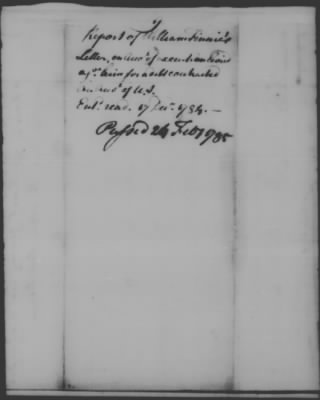 Report of William Finnie's
Letter, on acct. of executions
agst. him for debts contracted
on acct. of U.S.
Entd. read. 17 Decr. 1784.—
Passed 24 Feby 1785